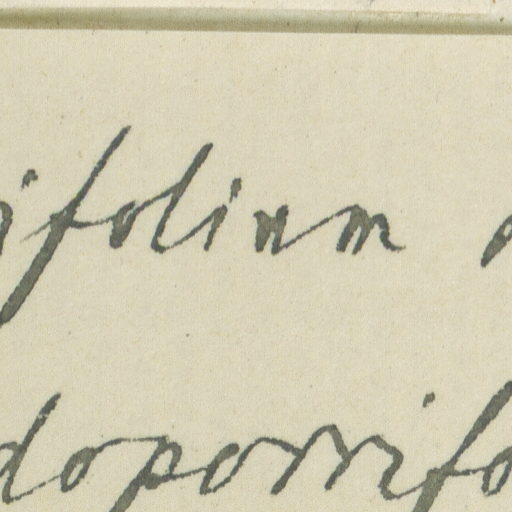 ifolium
doporrifo